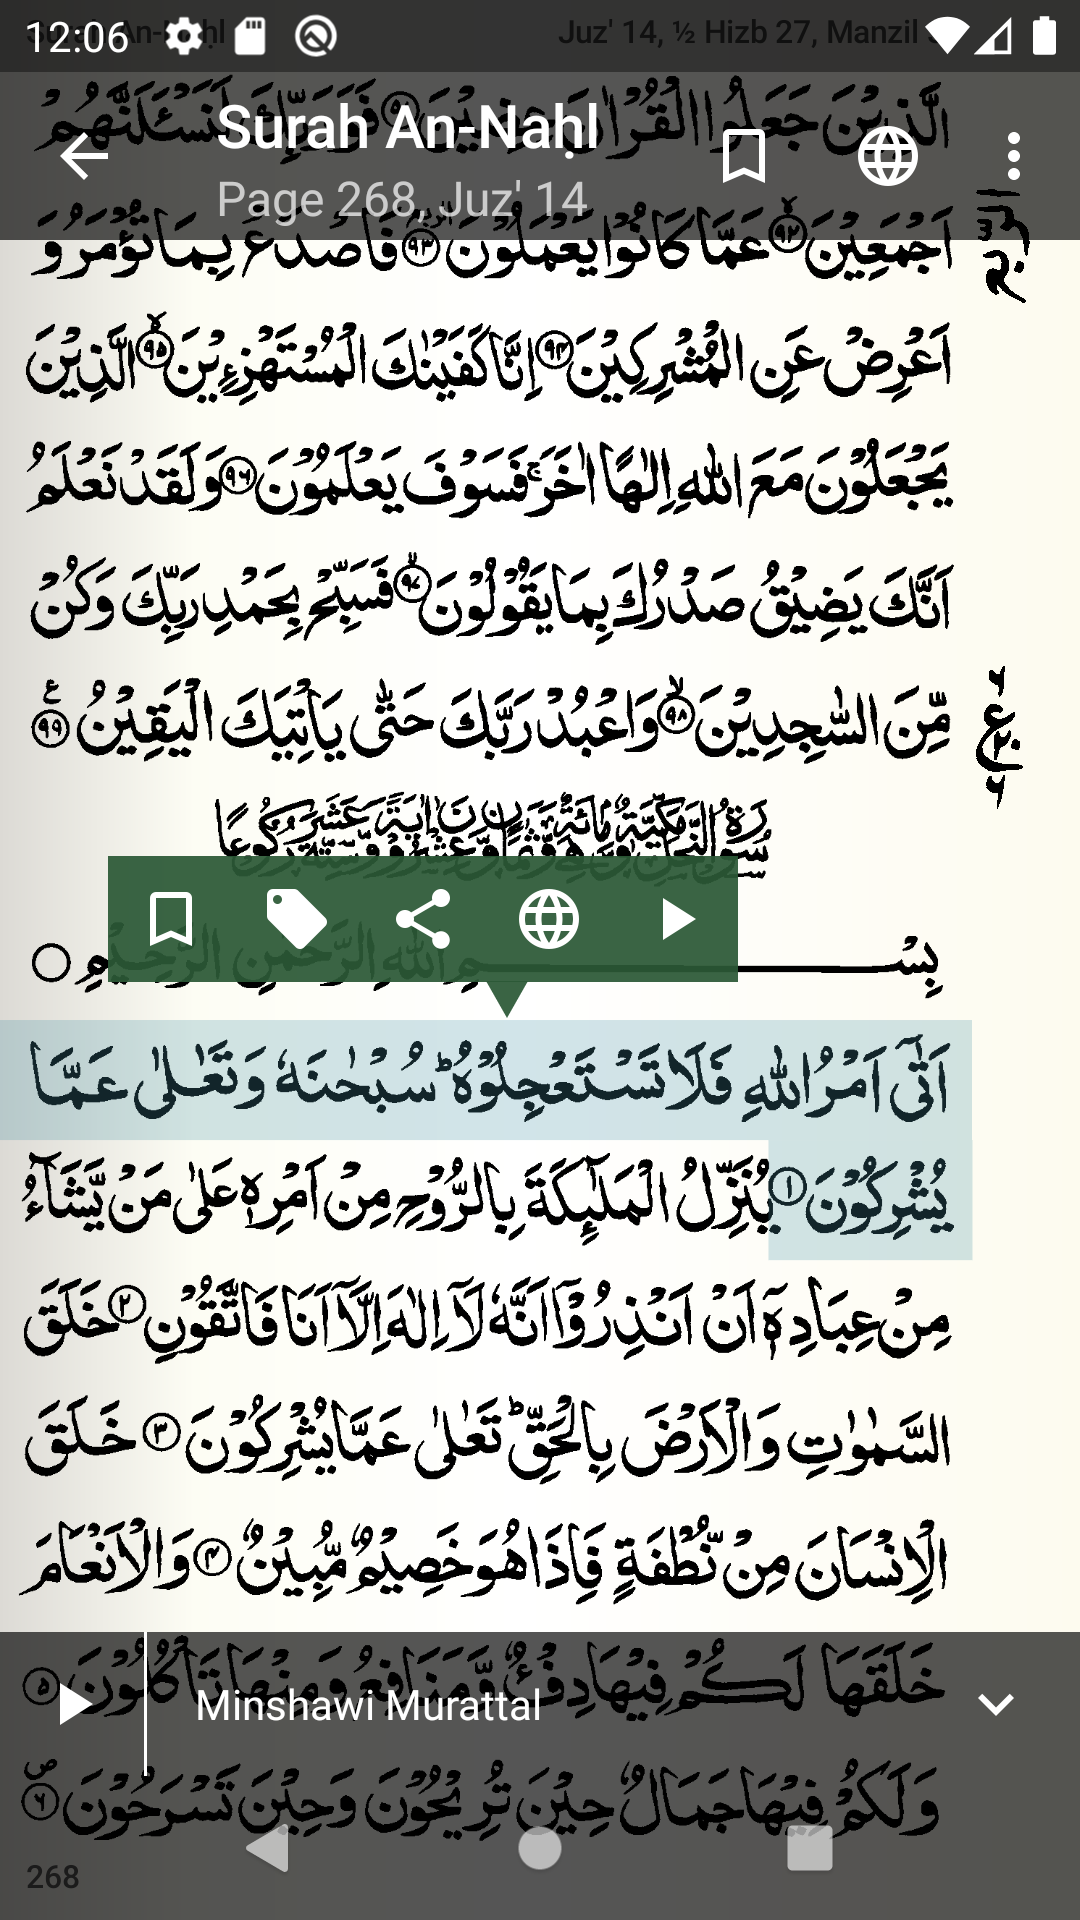 12:06
Surah An-Nahl Juz' 14, ½ Hizb 27, Manzil
Surah An-Naḥl
Page 268, Juz' 14
الَّذِيْنَ جَعَلُوا الْقُرْاٰنَ عِضِيْنَ ۹۱ فَوَرَبِّكَ لَنَسْـَٔلَنَّهُمْ
اَجْمَعِيْنَ ۹۲ عَمَّا كَانُوْا يَعْمَلُوْنَ ۹۳ فَاصْدَعْ بِمَا تُؤْمَرُ وَ
اَعْرِضْ عَنِ الْمُشْرِكِيْنَ ۹۴ اِنَّا كَفَيْنٰكَ الْمُسْتَهْزِءِيْنَ ۹۵ الَّذِيْنَ
يَجْعَلُوْنَ مَعَ اللّٰهِ اِلٰهًا اٰخَرَ ۚ فَسَوْفَ يَعْلَمُوْنَ ۹۶ وَلَقَدْ نَعْلَمُ
اَنَّكَ يَضِيْقُ صَدْرُكَ بِمَا يَقُوْلُوْنَ ۹۷ فَسَبِّحْ بِحَمْدِ رَبِّكَ وَكُنْ
مِّنَ السّٰجِدِيْنَ ۹۸ وَاعْبُدْ رَبَّكَ حَتّٰى يَاْتِيَكَ الْيَقِيْنُ ۹۹
بِسْمِ اللّٰهِ الرَّحْمٰنِ الرَّحِيْمِ
اَتٰٓى اَمْرُ اللّٰهِ فَلَا تَسْتَعْجِلُوْهُ ؕ سُبْحٰنَهٗ وَتَعٰلٰى عَمَّا
يُشْرِكُوْنَ ۱ يُنَزِّلُ الْمَلٰٓئِكَةَ بِالرُّوْحِ مِنْ اَمْرِهٖ عَلٰى مَنْ يَّشَآءُ
مِنْ عِبَادِهٖٓ اَنْ اَنْذِرُوْٓا اَنَّهٗ لَآ اِلٰهَ اِلَّآ اَنَا فَاتَّقُوْنِ ۲ خَلَقَ
السَّمٰوٰتِ وَالْاَرْضَ بِالْحَقِّ ؕ تَعٰلٰى عَمَّا يُشْرِكُوْنَ ۳ خَلَقَ
الْاِنْسَانَ مِنْ نُّطْفَةٍ فَاِذَا هُوَ خَصِيْمٌ مُّبِيْنٌ ۴ وَالْاَنْعَامَ
خَلَقَهَا لَكُمْ فِيْهَا دِفْءٌ وَّمَنَافِعُ وَمِنْهَا تَاْكُلُوْنَ ۵
Minshawi Murattal
وَلَكُمْ فِيْهَا جَمَالٌ حِيْنَ تُرِيْحُوْنَ وَحِيْنَ تَسْرَحُوْنَ ۶
268